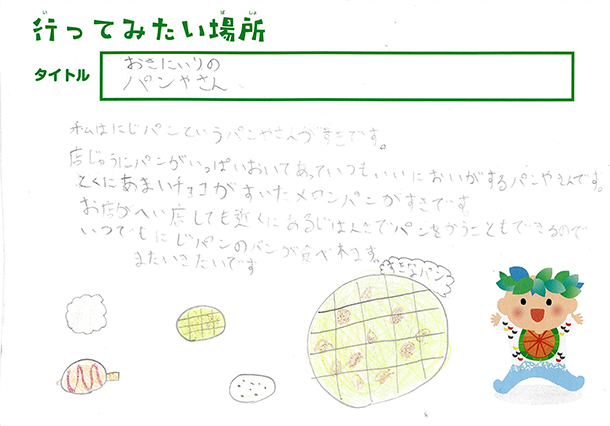 行ってみたい場所
タイトル
おきにいりの
パンやさん
私はにじパンというパンやさんがすきです。
店じゅうにパンがいっぱいおいてあっていつもいいにおいがするパンやさんです。
とくにあまいチョコがすいたメロンパンがすきです
お店がへい店しても近くにあるじはんきでパンをかうこともできるので
いつでもにじパンのパンが食べれます。
またいきたいです
すきなパン